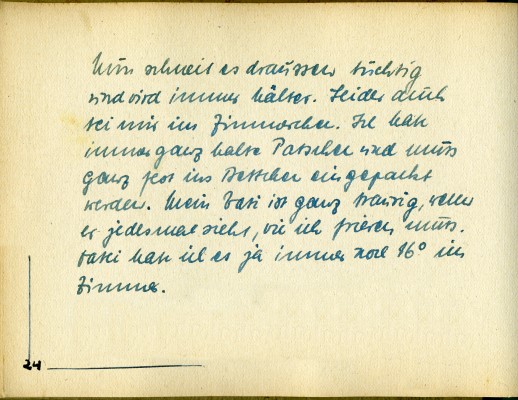 Nun schneit es draussen tüchtig
und wird immer kälter. Leider auch
bei mir im Zimmerchen. Ich habe
immer ganz kalte Patscher und muss
ganz fest ins Bettchen eingepackt
werden. Mein Vati ist ganz traurig, wenn
er jedesmal sieht, wie ich frieren muss.
Dabei habe ich es ja immer noch 16° im
Zimmer.
24